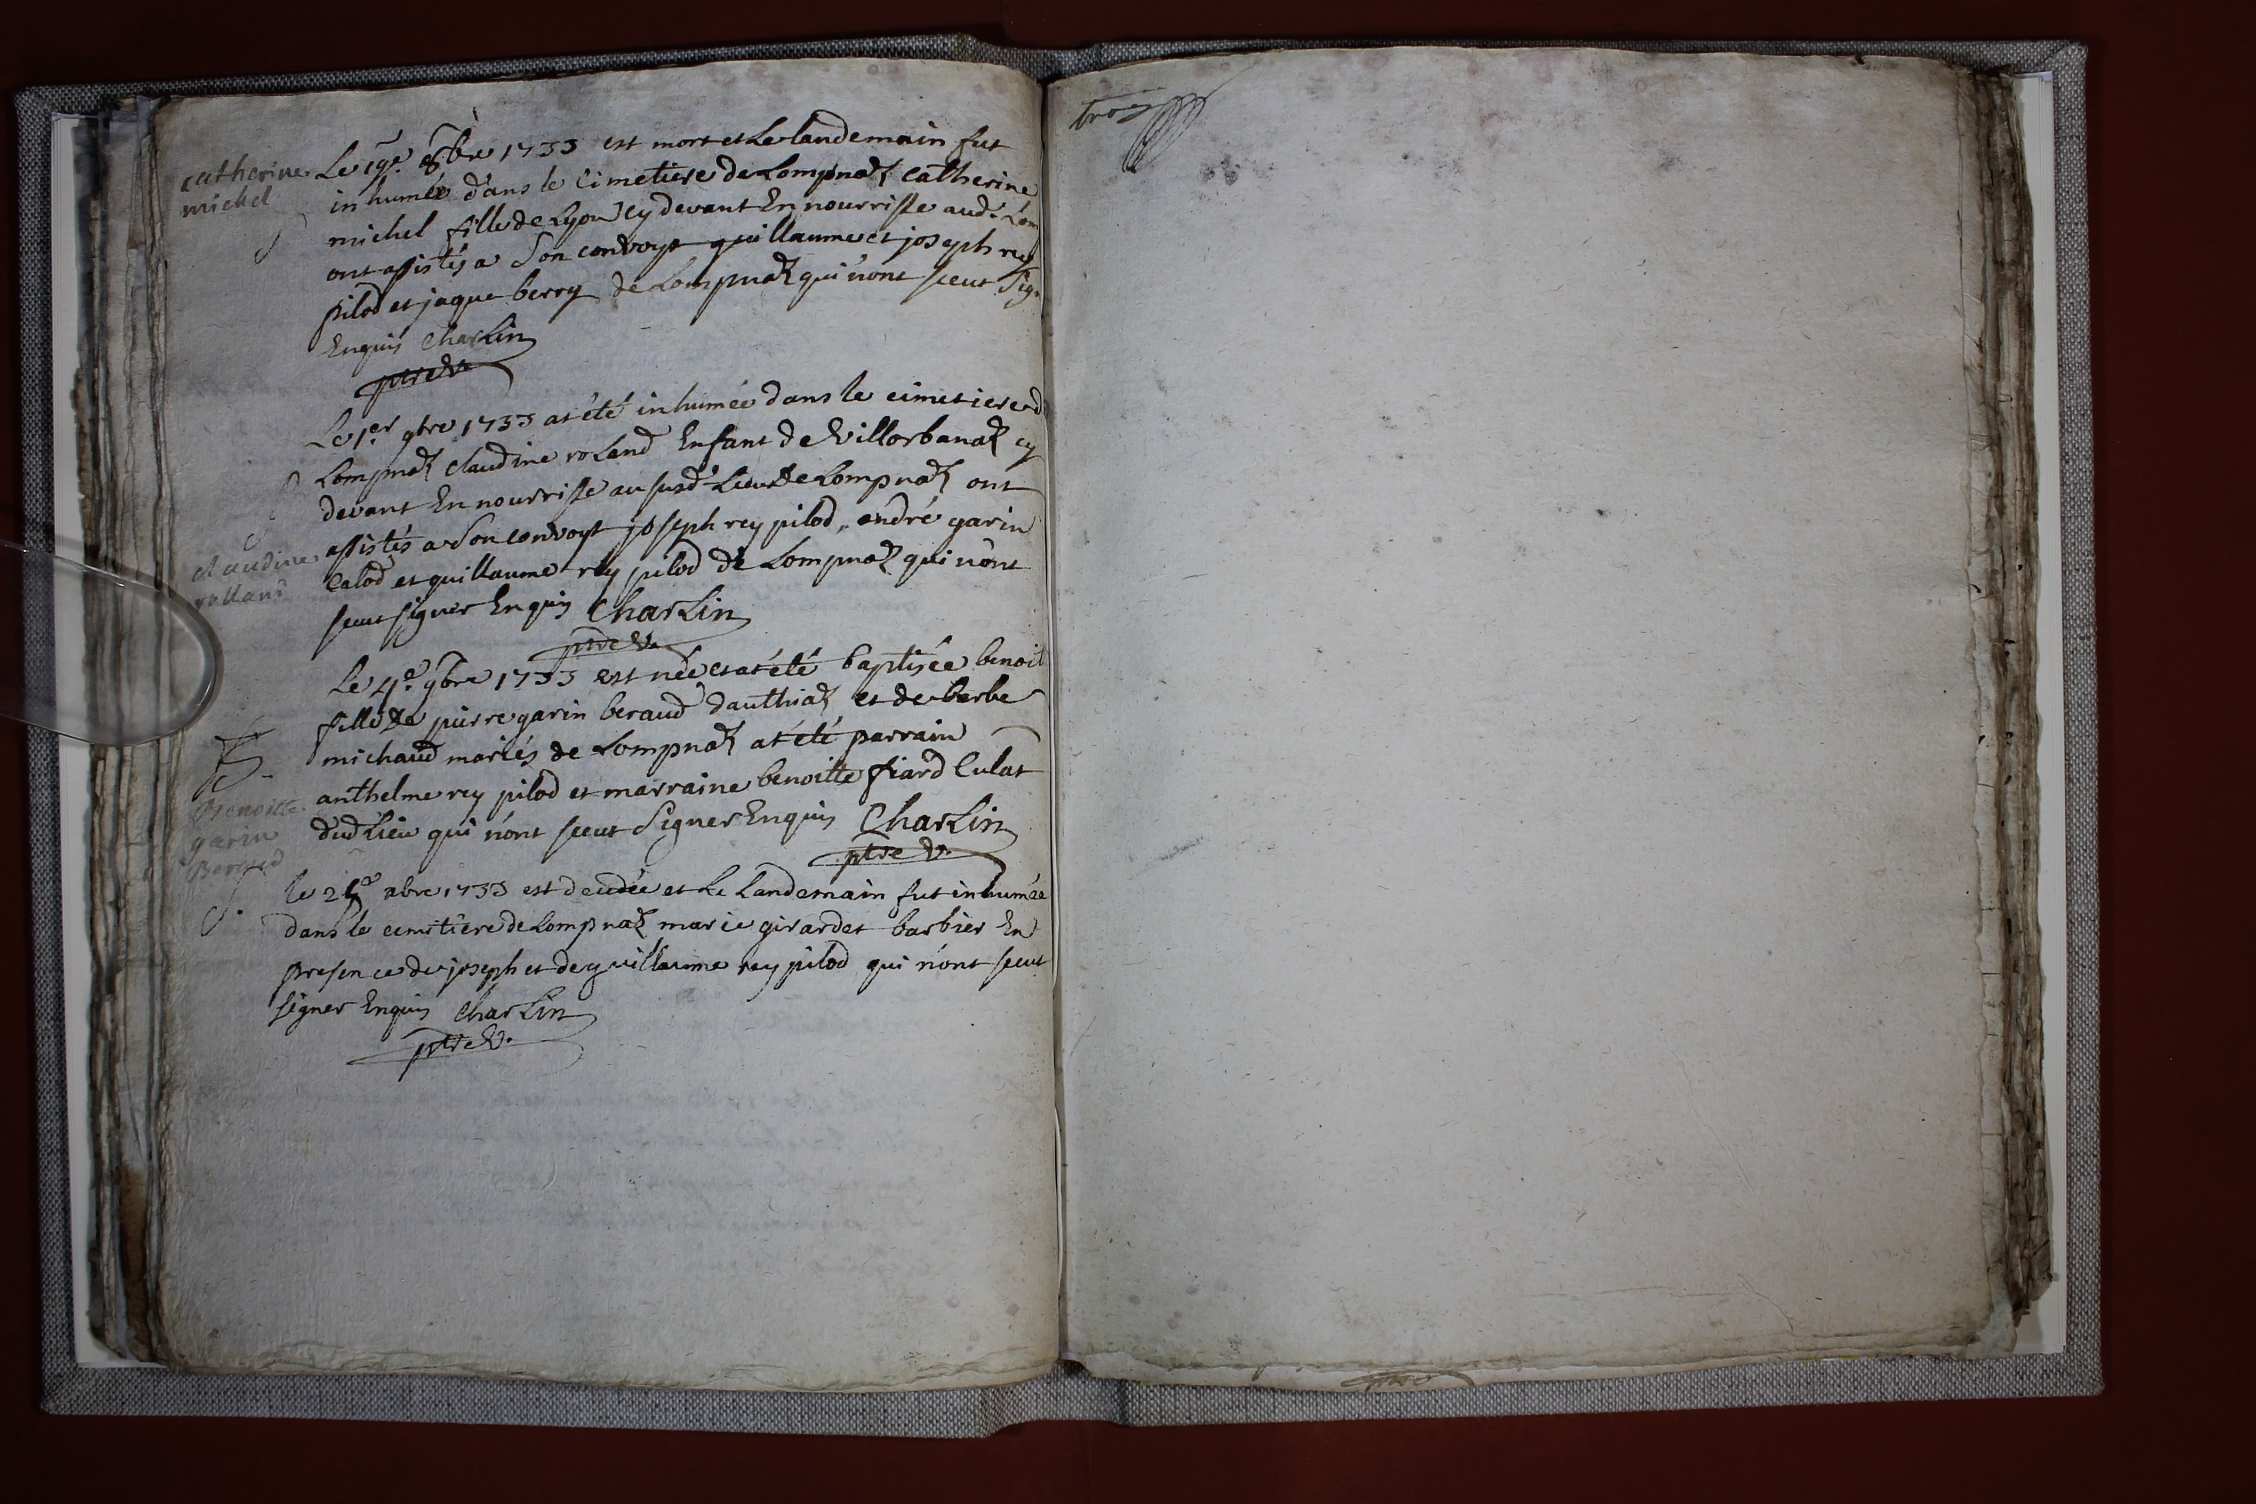 catherine
michel
Le 19e 8bre 1733 est mort et Le landemain fut
inhumée dans le Cimetiere de Lompnaz Catherine
michel fille de Lyon cy devant En nourrisse aud. Lom
ont assistés a Son convoye guillaume et joseph rey
pilod et jaque berry de Lompnaz qui n'ont sceut Sig.
Enquis Charlin
ptre V.
Le 1er 9bre 1733 at été inhumée dans le cimetiere d
Lompnaz Claudine roland Enfant de Villorbanaz cy
devant En nourrisse au susd. Lieu de Lompnaz ont
assistés a Son convoyt joseph rey pilod, andré garin
calod et guillaume rey pilod de Lompnaz qui n'ont
sceut signer Enquis Charlin
ptre V.
claudine
rolland
Le 4e 9bre 1733 est née et at été baptisée benoit
fille de pierre garin beraud d'authiaz et de berbe
michaud mariés de Lompnaz at été parrain
anthelme rey pilod et marraine benoitte fiard Culat
dud Lieu qui n'ont sceut Signer Enquis Charlin
ptre V.
Benoitte
garin
Beraud
le abre 1733 est decedée et Le Landemain fut inhumée
dans le cemitiere de Lompnaz marie girardet barbier En
presence de joseph et de guillaume rey pilod qui n'ont sceut
signer Enquis Charlin
ptre V.
trois